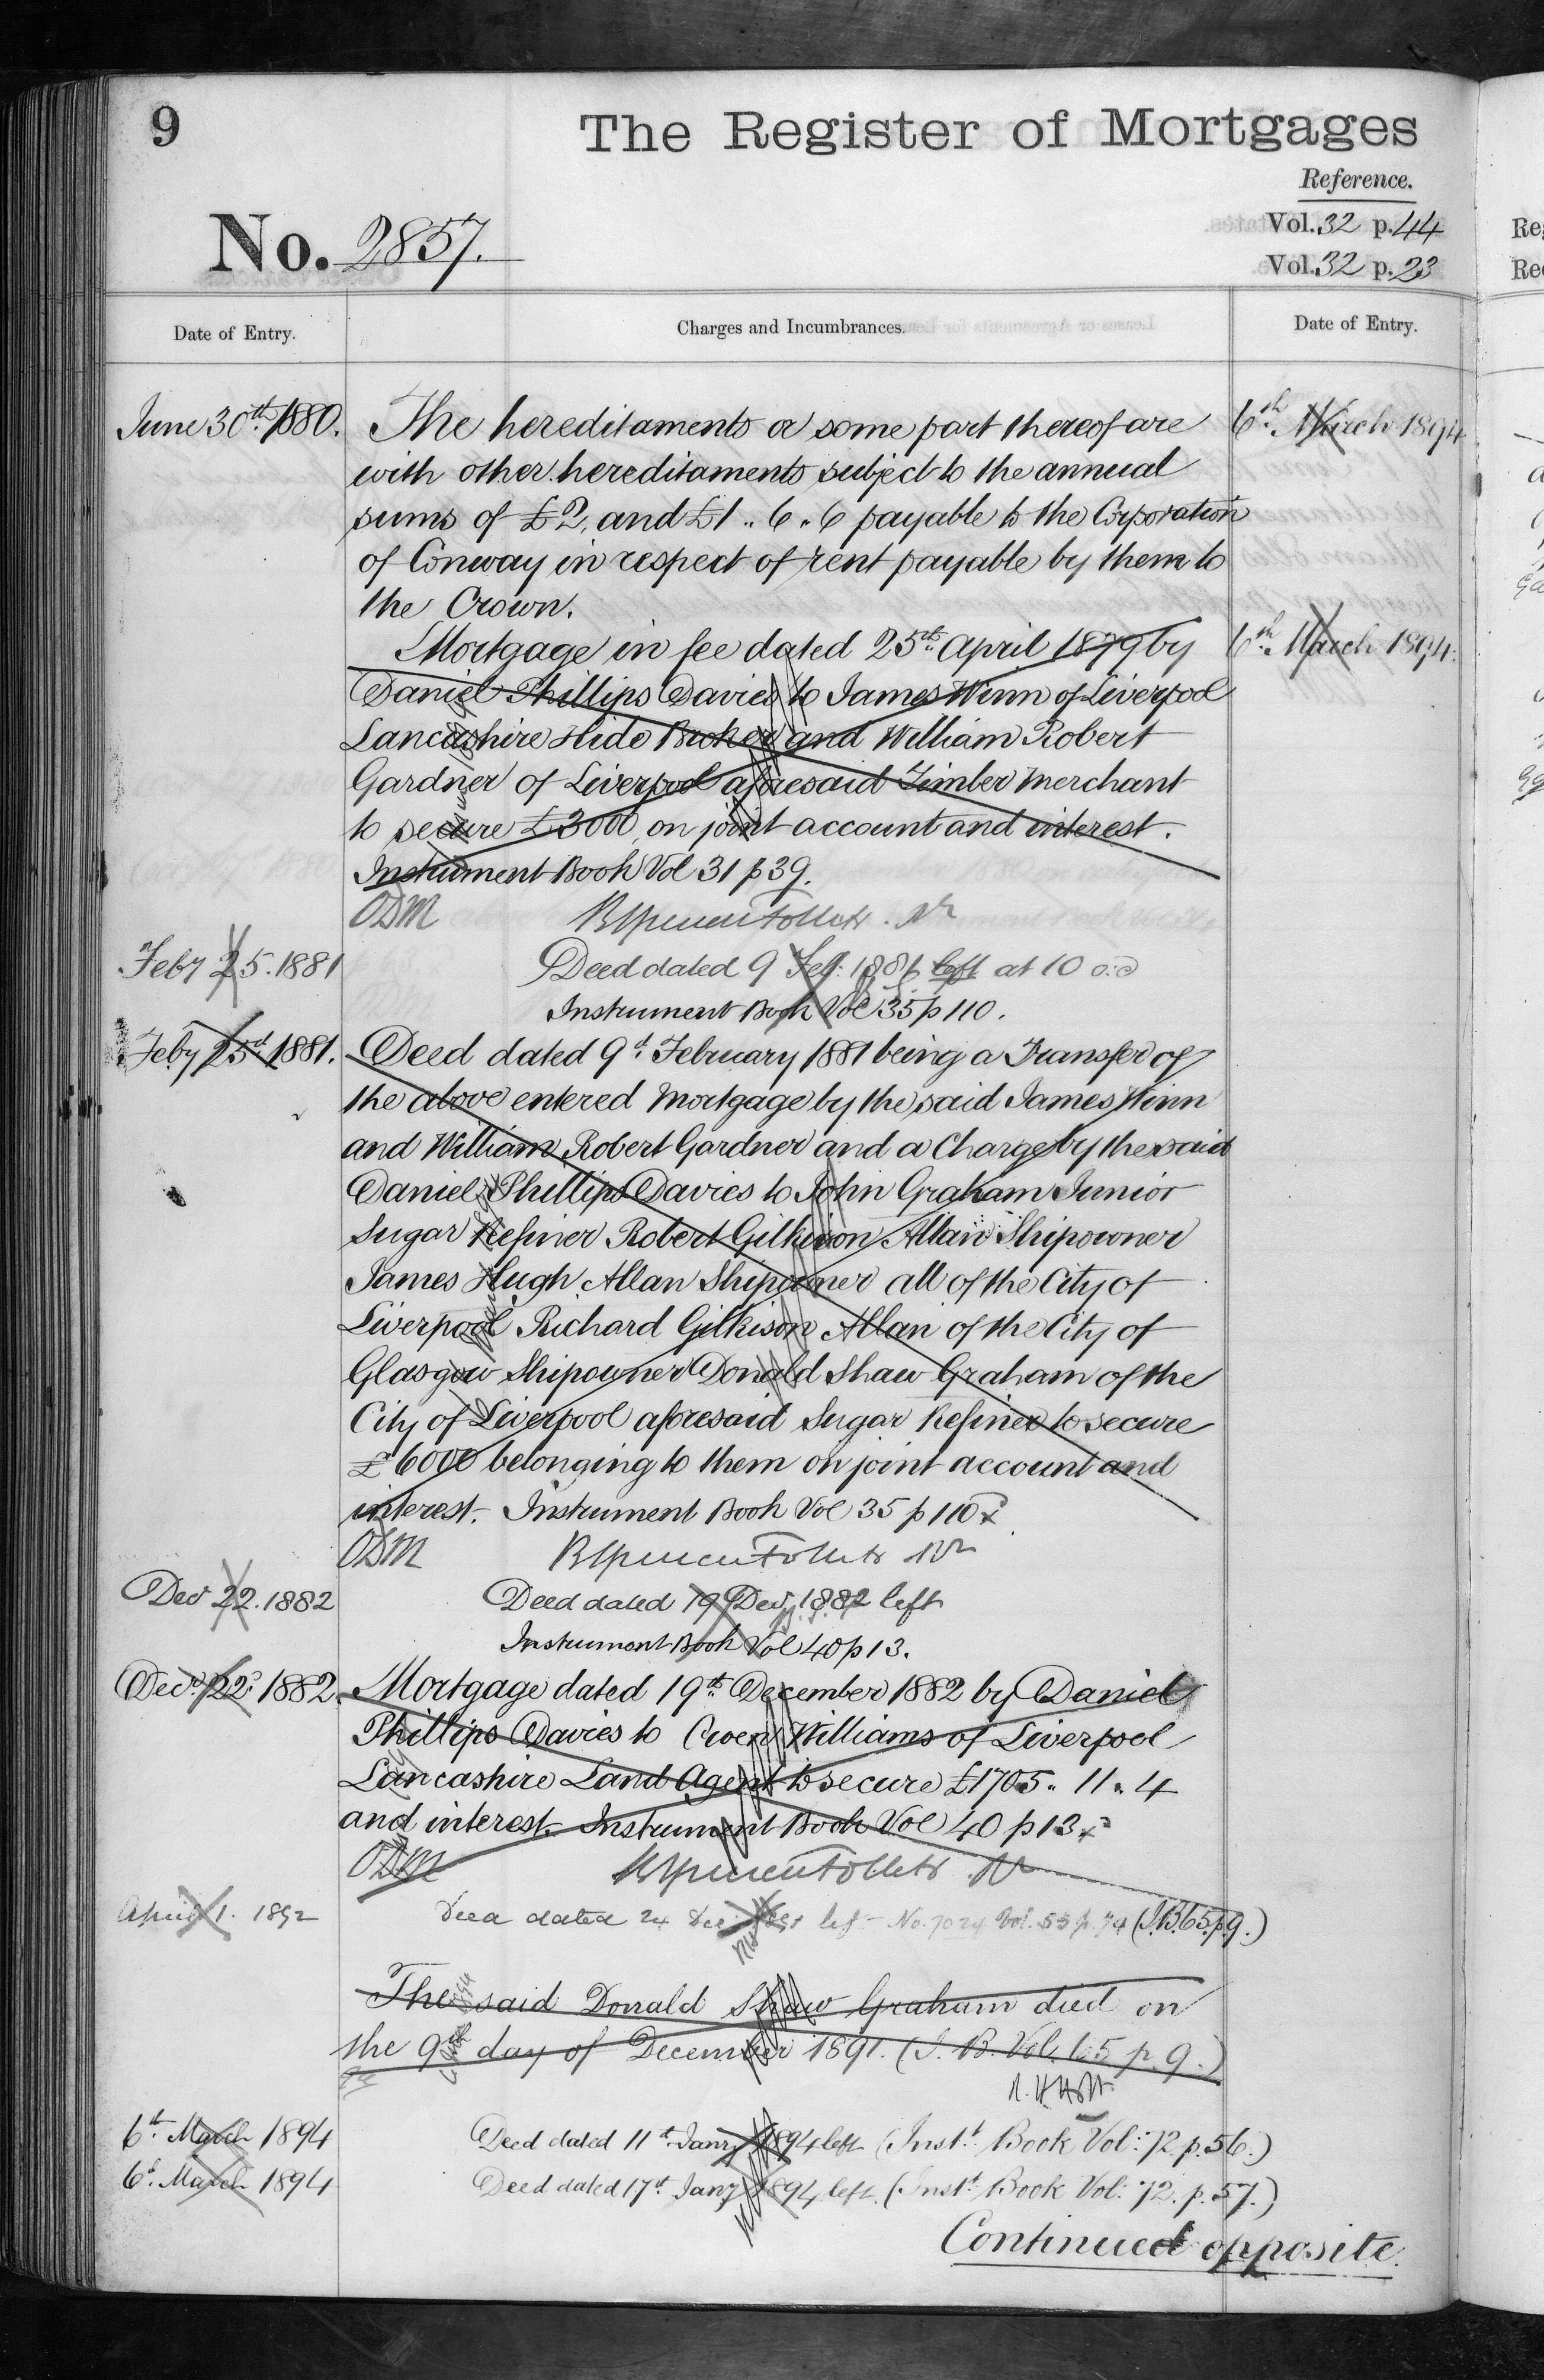 9
The Register of Mortgages
Reference.
No. 2857.
Vol. 32 p. 44
Vol. 32 p. 23
Date of Entry.
Charges and Incumbrances.
Date of Entry.
June 30th 1880. The hereditaments or some part thereof are 6th March 1894
with other hereditaments subject to the annual
sums of £2, and £1 .. 6 .. 6 payable to the Corporation
of Conway in respect of rent payable by them to
the Crown.
Mortgage in fee dated 25th April 1879 by 6th March 1894.
Daniel Phillips Davies to James Winn of Liverpool
Lancashire Hide Broker and William Robert
Gardner of Liverpool aforesaid Timber Merchant
to secure £3000, on joint account and interest.
Instrument Book Vol 31 p 39.
ODM
Feby 25. 1881 Deed dated 9 Feb: 1881 left at 10 o.c
Instrument Book Vol 35 p 110.
Feby 25th 1881. Deed dated 9th February 1881 being a Transfer of
the above entered Mortgage by the said James Winn
and William Robert Gardner and a Charge by the said
Daniel Phillips Davies to John Graham Junior
Sugar Refiner Robert Gilkison Allan Shipowner
James Hugh Allan Shipowner all of the City of
Liverpool Richard Gilkison Allan of the City of
Glasgow Shipowner Donald Shaw Graham of the
City of Liverpool aforesaid Sugar Refiner to secure
£6000 belonging to them on joint account and
interest. Instrument Book Vol 35 p 110
ODM
Decr 22. 1882 Deed dated 19 Decr 1882 left
Instrument Book Vol 40 p 13.
Decr 22d 1882. Mortgage dated 19th December 1882 by Daniel
Phillips Davies to Owen Williams of Liverpool
Lancashire Land Agent to secure £1705 .. 11 .. 4
and interest. Instrument Book Vol 40 p 13
ODM
April 1. 1892 Deed dated 24 Dec 1891 left No. 7024 Vol. 55 p. 74 (I.B. 65. p 9.)
The said Donald Shaw Graham died on
the 9th day of December 1891. (I. B. Vol. 65 p. 9.)
6th March 1894 Deed dated 11th Jany 1894 left (Inst. Book Vol: 72 p. 56.)
6th March 1894 Deed dated 17th Jany 1894 left. (Inst. Book Vol: 72. p. 57.)
Continued opposite.